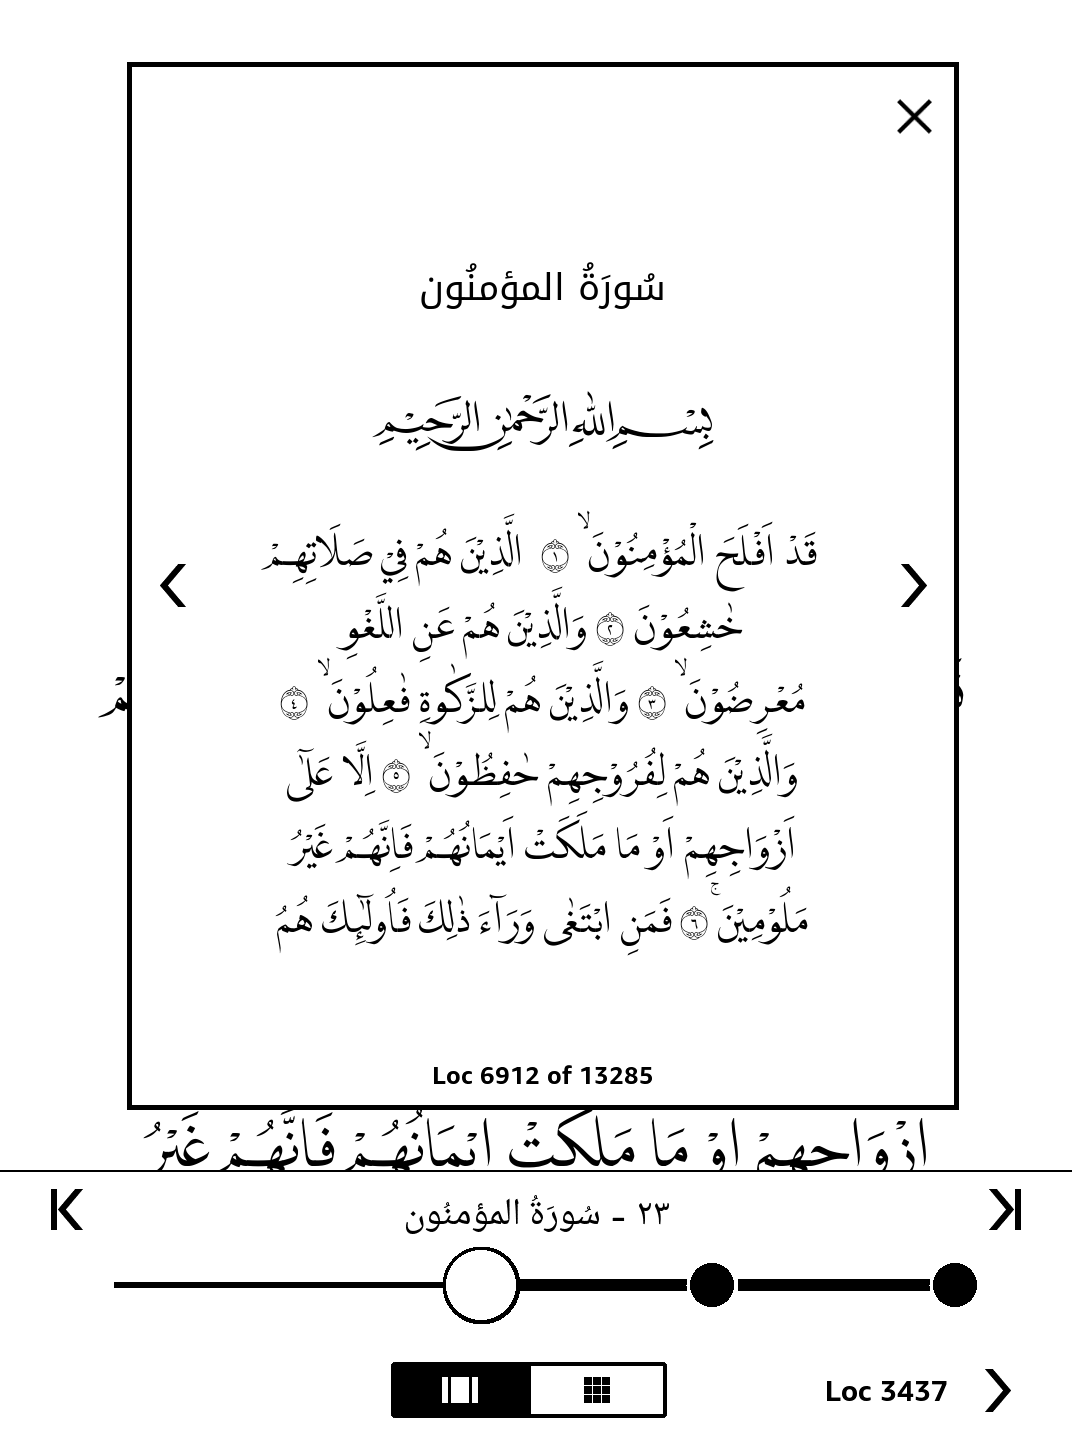 سُورَةُ المؤمنُون
بِسْمِ اللّٰهِ الرَّحْمٰنِ الرَّحِيْمِ
قَدْ اَفْلَحَ الْمُؤْمِنُوْنَ ۙ ١ الَّذِيْنَ هُمْ فِيْ صَلَاتِهِمْ
خٰشِعُوْنَ ٢ وَالَّذِيْنَ هُمْ عَنِ اللَّغْوِ
مُعْرِضُوْنَ ۙ ٣ وَالَّذِيْنَ هُمْ لِلزَّكٰوةِ فٰعِلُوْنَ ۙ ٤
وَالَّذِيْنَ هُمْ لِفُرُوْجِهِمْ حٰفِظُوْنَ ۙ ٥ اِلَّا عَلٰٓى
اَزْوَاجِهِمْ اَوْ مَا مَلَكَتْ اَيْمَانُهُمْ فَاِنَّهُمْ غَيْرُ
مَلُوْمِيْنَ ۚ ٦ فَمَنِ ابْتَغٰى وَرَآءَ ذٰلِكَ فَاُولٰٓئِكَ هُمُ
Loc 6912 of 13285
ازْوَاجِهِمْ اوْ مَا مَلَكَتْ ايْمَانُهُمْ فَانَّهُمْ غَيْرُ
٢٣ - سُورَةُ المؤمنُون
Loc 3437